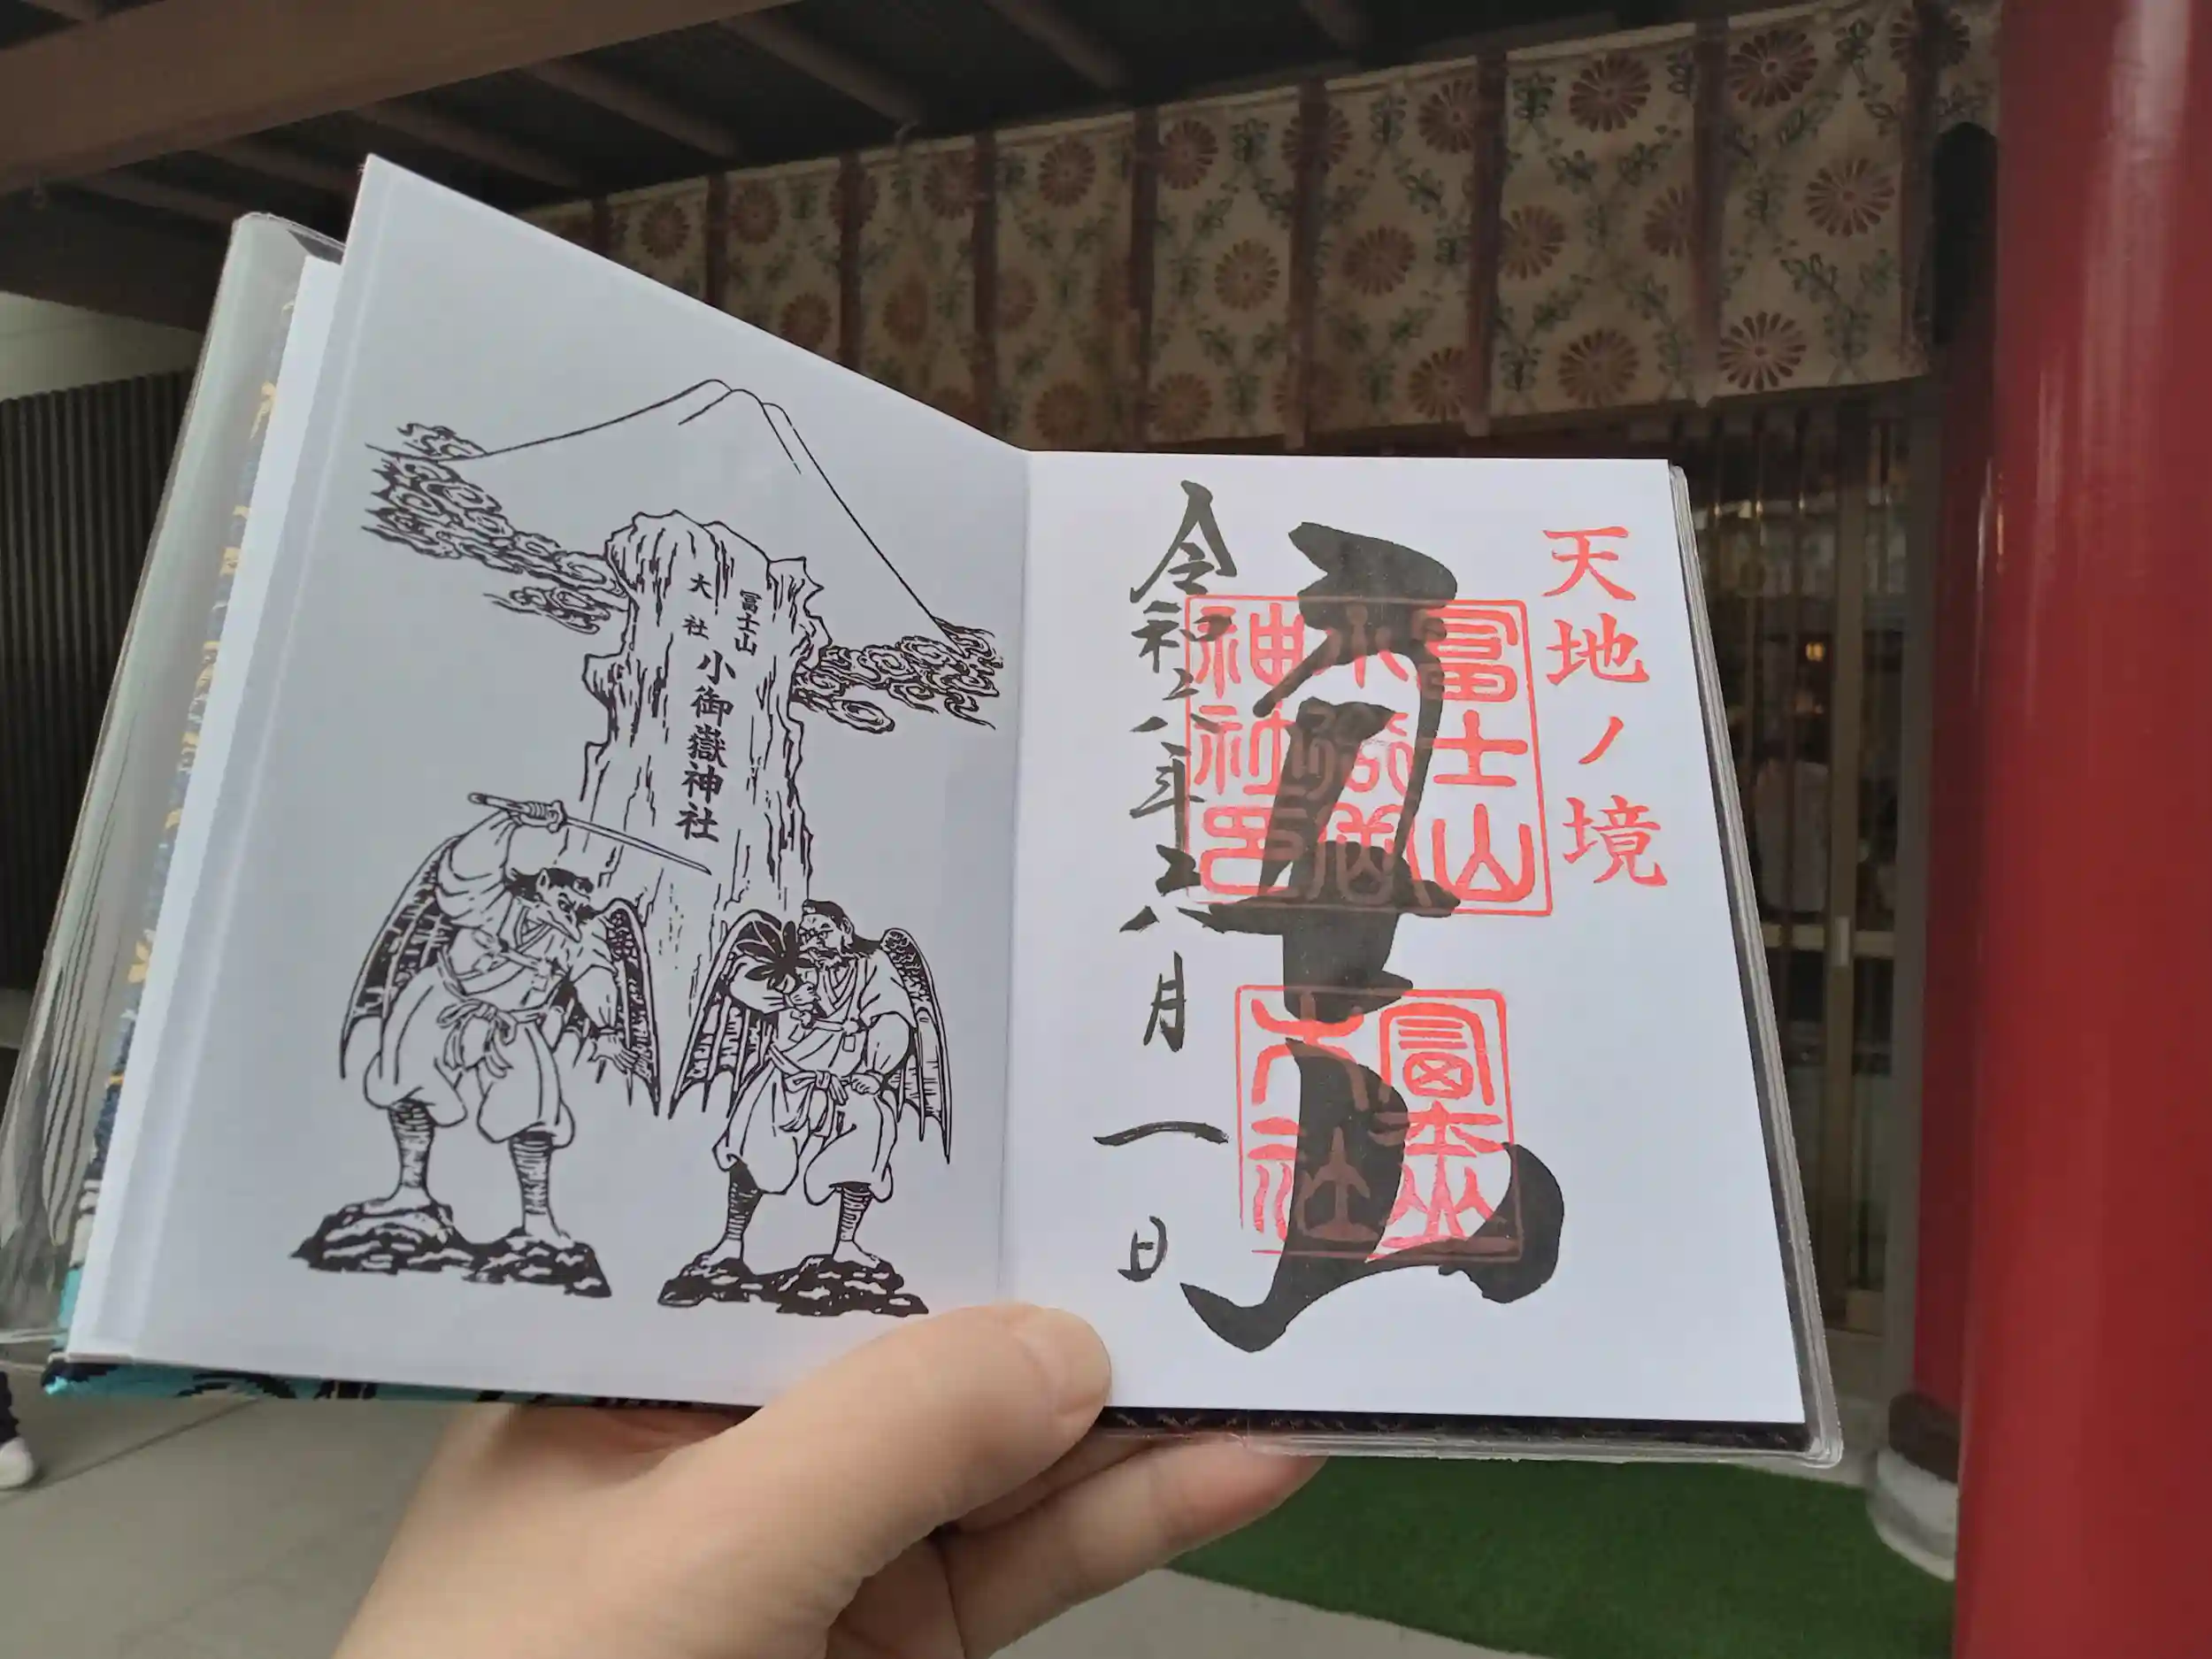 天地ノ境
冨士山
小御嶽
神社印
冨士山
大社
令和六年六月一日
冨士山
大社
小御嶽神社